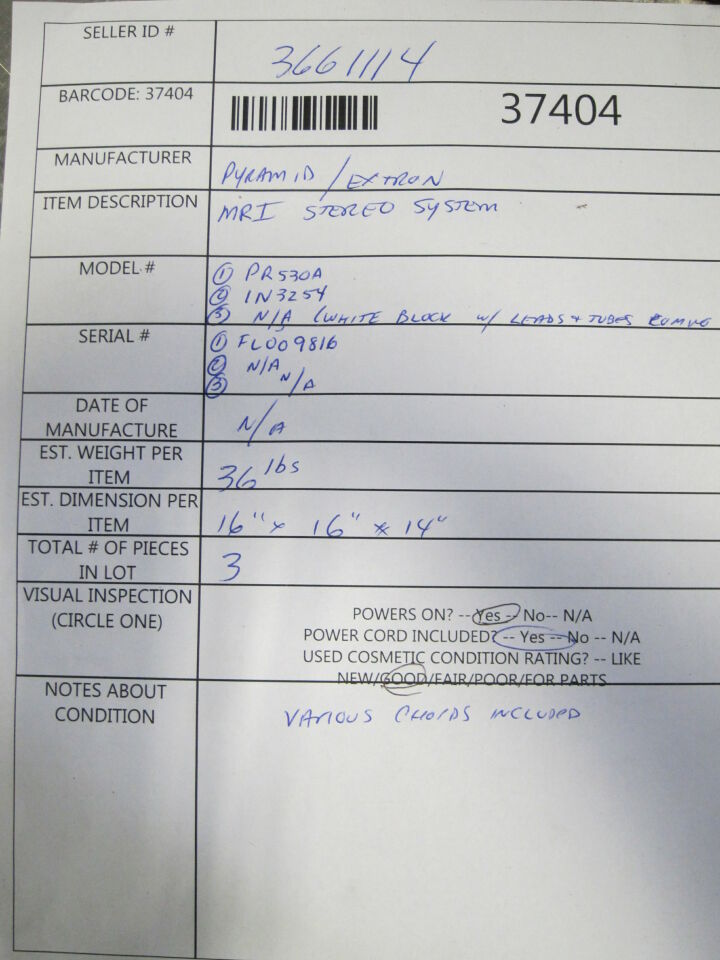 SELLER ID #
3661114
BARCODE: 37404
37404
MANUFACTURER
PYRAMID / EXTRON
ITEM DESCRIPTION
MRI STEREO SYSTEM
MODEL #
① PR530A
② IN3254
③ N/A (WHITE BLOCK W/ LEADS + TUBES
SERIAL #
① FL009816
② N/A
③ N/A
DATE OF
MANUFACTURE
N/A
EST. WEIGHT PER
ITEM
36 lbs
EST. DIMENSION PER
ITEM
16" x 16" x 14"
TOTAL # OF PIECES
IN LOT
3
VISUAL INSPECTION
(CIRCLE ONE)
POWERS ON? -- Yes -- No-- N/A
POWER CORD INCLUDED? -- Yes -- No -- N/A
USED COSMETIC CONDITION RATING? -- LIKE
NEW/GOOD/FAIR/POOR/FOR PARTS
NOTES ABOUT
CONDITION
VARIOUS CHORDS INCLUDED